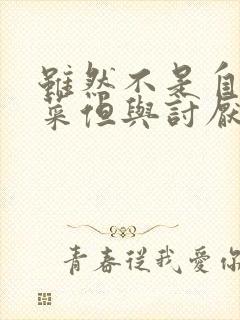 雖然不是自
菜但與討厭
青春從我愛你